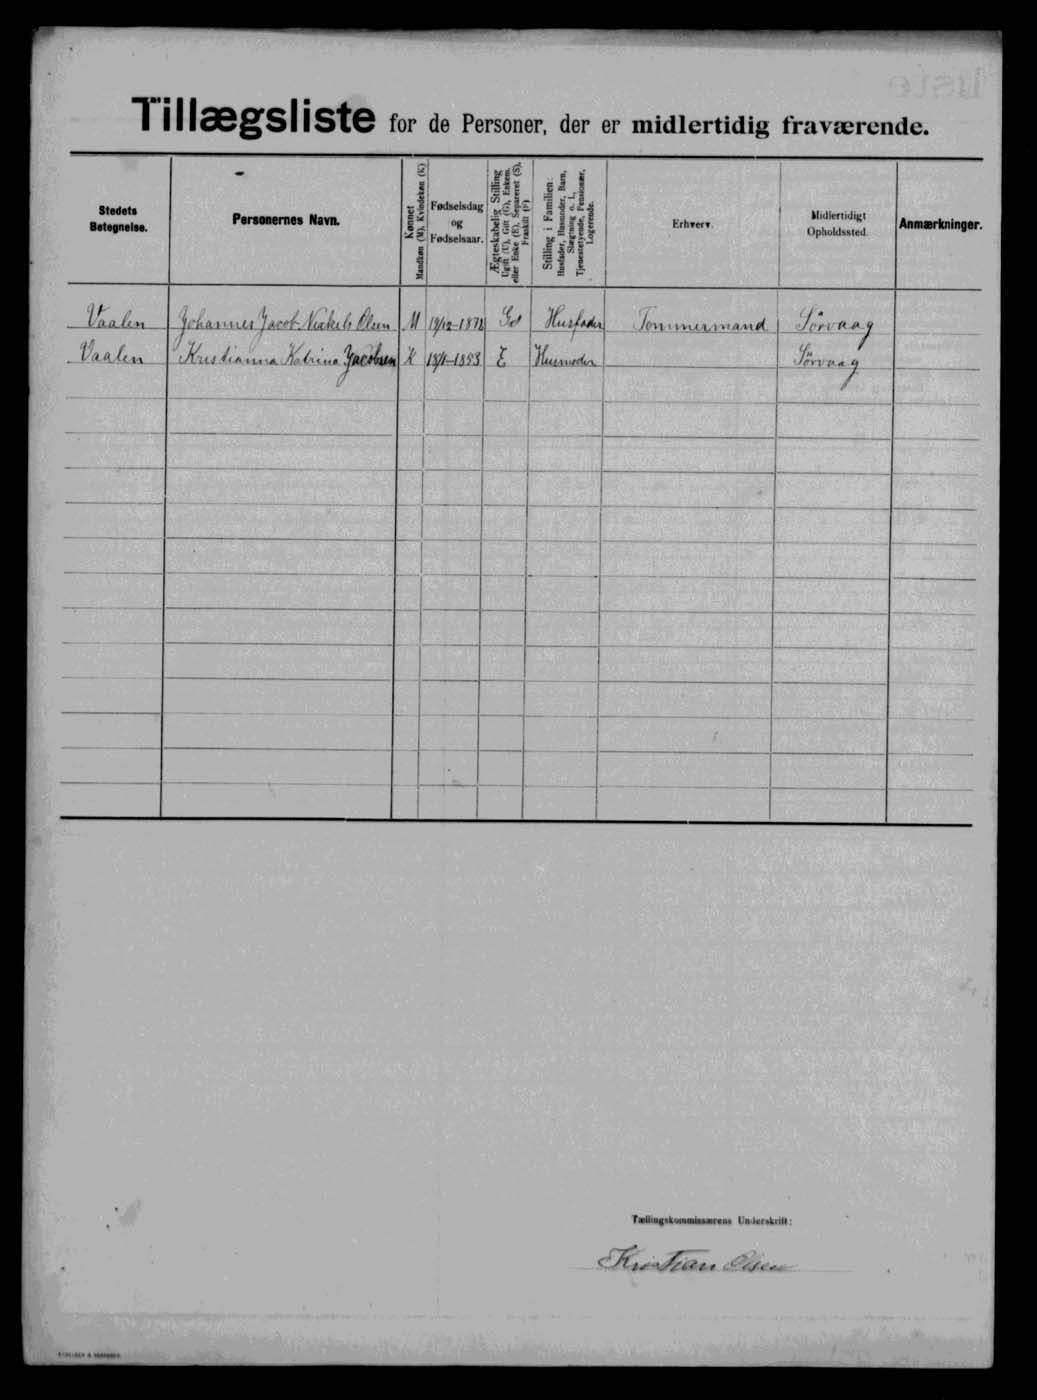 Tillægsliste for de Personer, der er midlertidig fraværende.
Stedets Betegnelse.
Personernes Navn.
Kønnet Mandkøn (M), Kvindekøn (K)
Fødselsdag og Fødselsaar.
Ægteskabelig Stilling Ugift (U), Gift (G), Enkem. eller Enke (E), Separeret (S), Fraskilt (F)
Stilling i Familien: Husfader, Husmoder, Barn, Slægtning o. l., Tjenestetyende, Pensionær, Logerende.
Erhverv.
Midlertidigt Opholdssted.
Anmærkninger.
Vaalen Johannes Jacob Olsen M 19/12-1872 Husfader Tommermand Sörvaag
Vaalen Kristianna Katrina Jacobsen K E Husmoder Sörvaag
Tællingskommissærens Underskrift:
Kristian Olsen